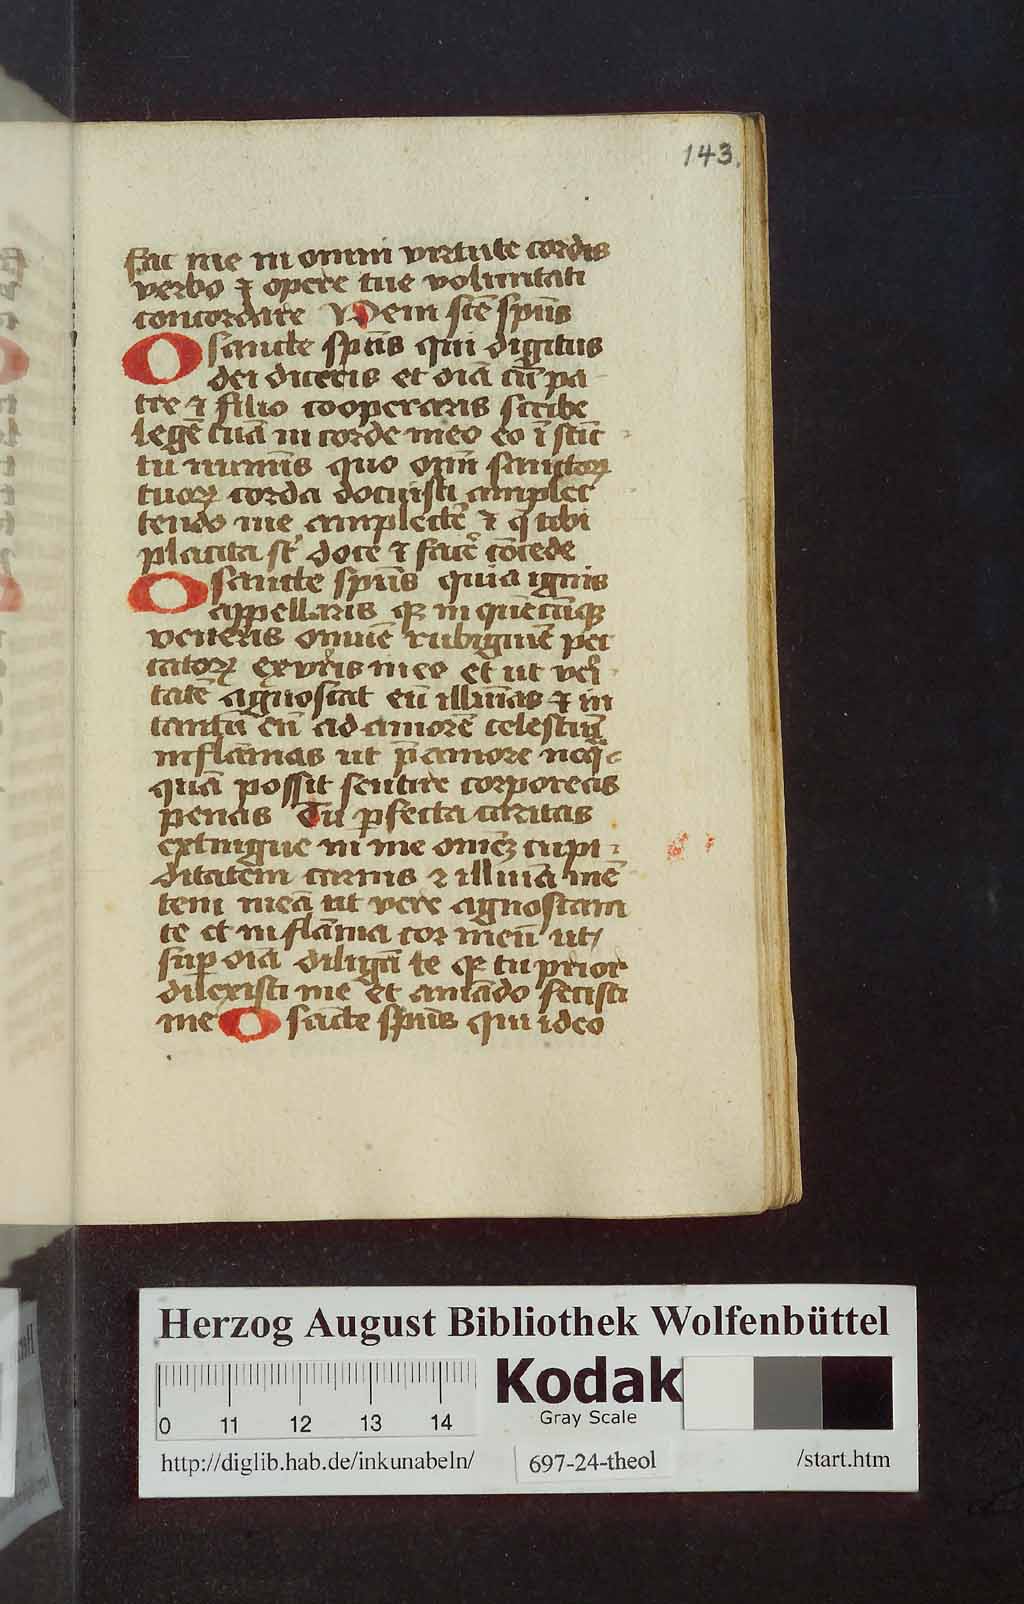 143.
fac me in omni virtute cordis
verbo ⁊ opere tue voluntati
concordare Veni scē spūs
O sancte spūs qui digitus
dei diceris et oīa cū pa
tre ⁊ filio cooperaris scribe
legē tuā in corde meo eo īstīc
tu numīs quo oīm sanctoꝝ
tuoꝝ corda docuisti amplec
tendo me amplectē ⁊ q tibi
placita st̄ doce ⁊ facē cōcede
O sancte spūs quia ignis
appellaris qꝛ in quēcūqꝫ
veneris omnē rubiginē pec
catoꝝ exuris meo et ut veri
tatē agnoscat eū illūīas ⁊ in
tantū eū ad amorē celestiū
inflāmas ut p̄ amore neqͣ
quā possit sentire corporeas
penas Tu ꝑfecta caritas
extingue in me omēꝫ cupi
ditatem carnis ⁊ illūīa mē
tem meā ut vere agnoscam
te et inflāma cor meū ut
suꝑ oīa diligā te qꝛ tu prior
dilexisti me et amādo fecisti
me O sācte spūs qui ideo
Herzog August Bibliothek Wolfenbüttel
Kodak
Gray Scale
0 11 12 13 14
http://diglib.hab.de/inkunabeln/ 697-24-theol /start.htm